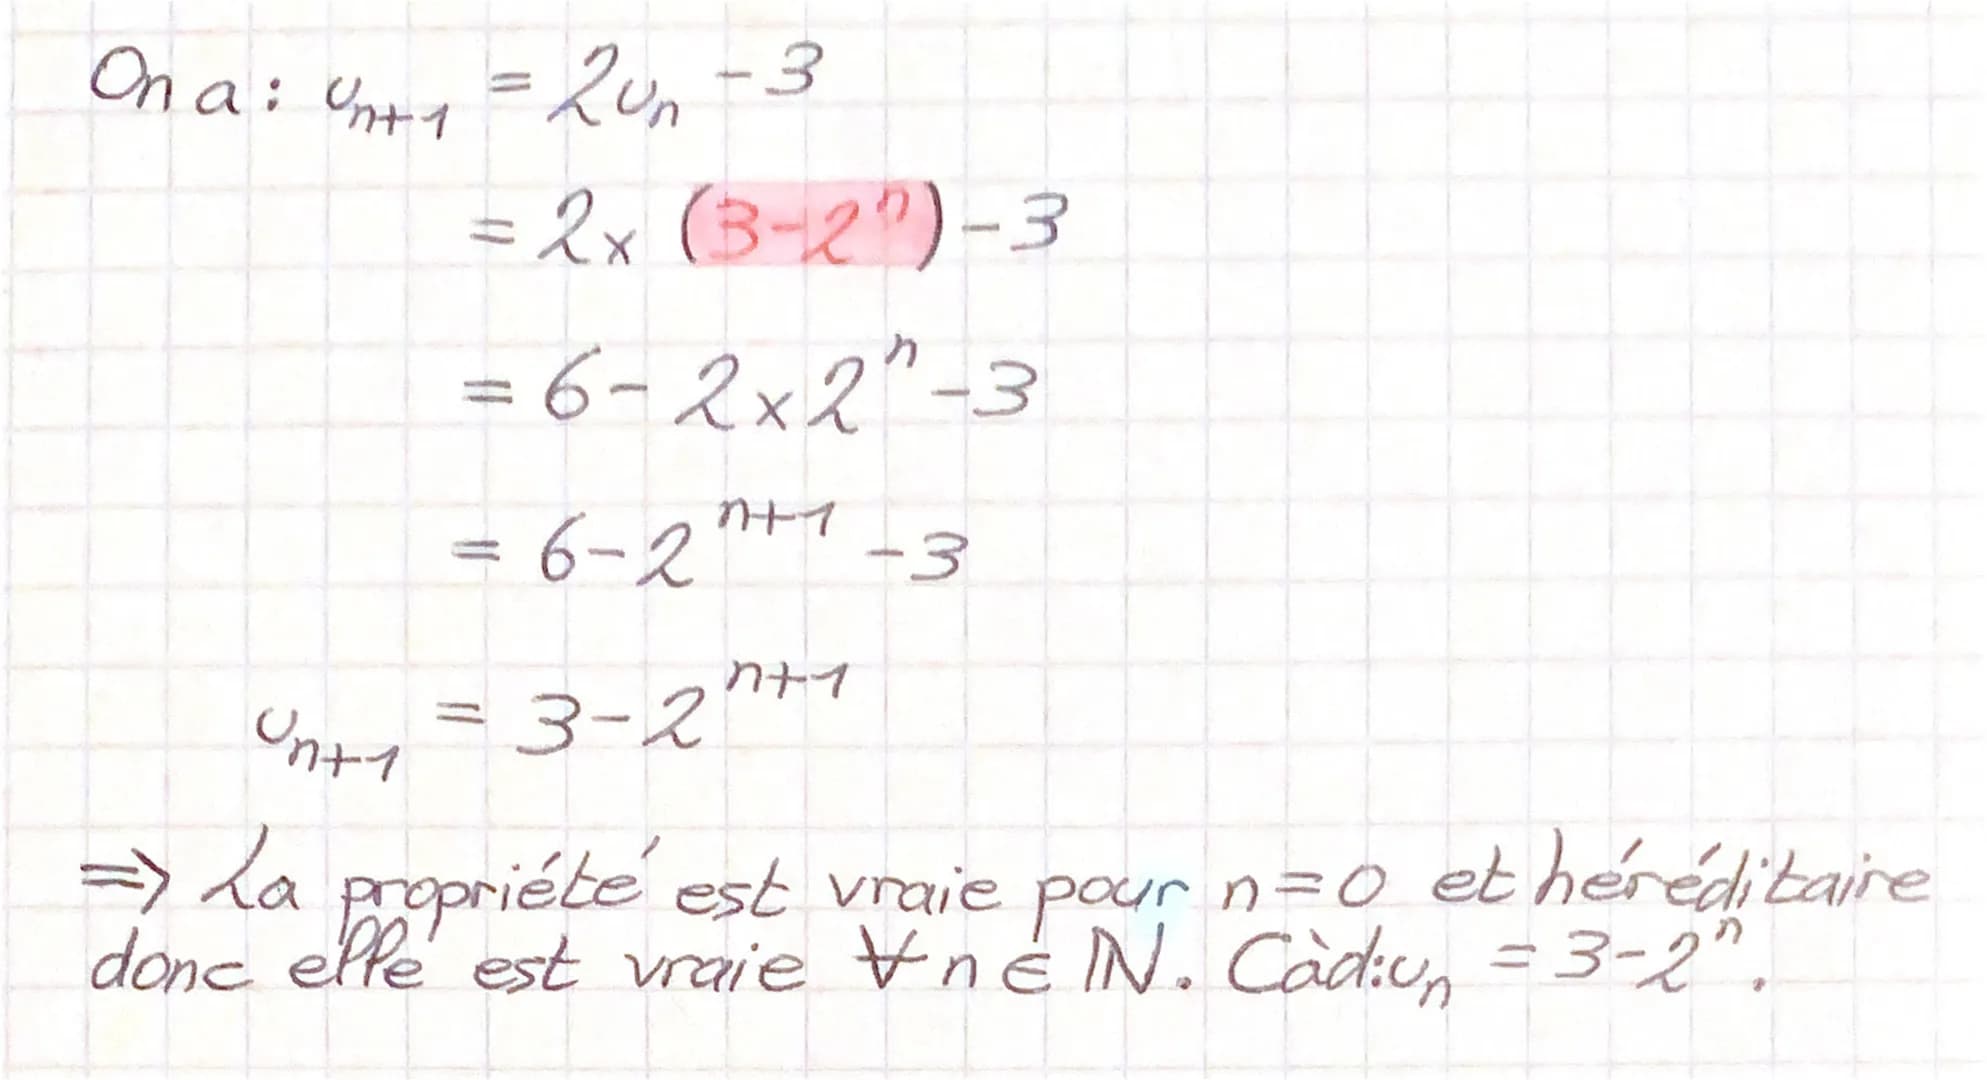 On a : uₙ₊₁ = 2uₙ - 3
= 2 × (3-2ⁿ) - 3
= 6 - 2 × 2ⁿ - 3
= 6 - 2ⁿ⁺¹ - 3
uₙ₊₁ = 3 - 2ⁿ⁺¹
=> La propriété est vraie pour n=0 et héréditaire
donc elle est vraie ∀ n ∈ ℕ. Càd: uₙ = 3-2ⁿ.